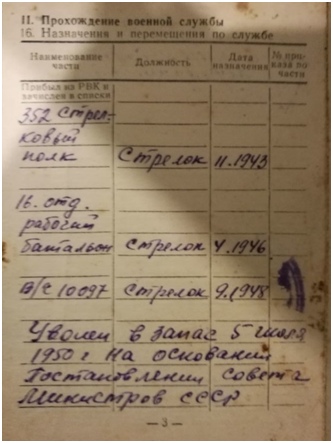 II. Прохождение военной службы
16. Назначения и перемещения по службе
Наименование части Должность Дата назначения № приказа по части
Прибыл из РВК и зачислен в списки
352 Стрел-
ковый
полк Стрелок 11.1943
16. отд.
рабочий
батальон стрелок 4.1946
В/с 10097 стрелок 9.1948
Уволен в запас 5 июля
1950 г на основании
Постановления Совета
Министров СССР
— 3 —